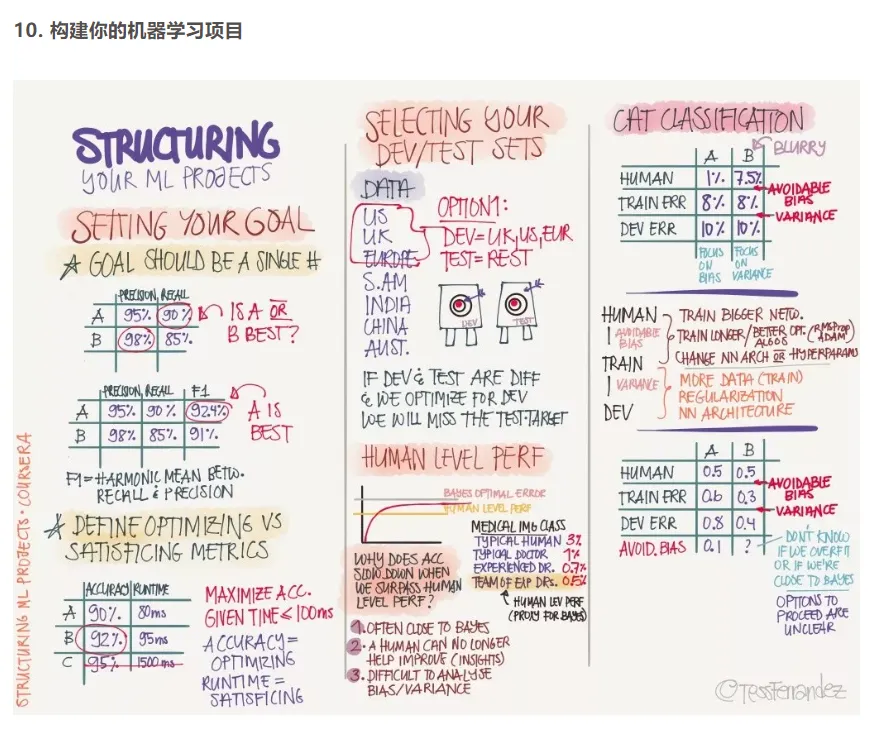 10. 构建你的机器学习项目
STRUCTURING
YOUR ML PROJECTS
SETTING YOUR GOAL
GOAL SHOULD BE A SINGLE #
PRECISION RECALL
A 95% 90%
B 98% 85%
IS A OR
B BEST?
PRECISION RECALL F1
A 95% 90% 92.4%
B 98% 85% 91%
A IS
BEST
F1 = HARMONIC MEAN BETW.
RECALL & PRECISION
DEFINE OPTIMIZING VS
SATISFICING METRICS
ACCURACY RUNTIME
A 90% 80ms
B 92% 95ms
C 95% 1500 ms
MAXIMIZE ACC.
GIVEN TIME ≤ 100ms
ACCURACY =
OPTIMIZING
RUNTIME =
SATISFICING
STRUCTURING ML PROJECTS · COURSERA
SELECTING YOUR
DEV/TEST SETS
DATA
US
UK
EUROPE
S.AM
INDIA
CHINA
AUST.
OPTION1:
DEV = UK, US, EUR
TEST = REST
DEV
TEST
IF DEV & TEST ARE DIFF
& WE OPTIMIZE FOR DEV
WE WILL MISS THE TEST-TARGET
HUMAN LEVEL PERF
BAYES OPTIMAL ERROR
HUMAN LEVEL PERF
WHY DOES ACC
SLOW DOWN WHEN
WE SURPASS HUMAN
LEVEL PERF?
MEDICAL IMG CLASS
TYPICAL HUMAN 3%
TYPICAL DOCTOR 1%
EXPERIENCED DR. 0.7%
TEAM OF EXP DRS. 0.5%
HUMAN LEV PERF
(PROXY FOR BAYES)
1. OFTEN CLOSE TO BAYES
2. A HUMAN CAN NO LONGER
HELP IMPROVE (INSIGHTS)
3. DIFFICULT TO ANALYSE
BIAS/VARIANCE
CAT CLASSIFICATION
A B BLURRY
HUMAN 1% 7.5%
TRAIN ERR 8% 8%
DEV ERR 10% 10%
AVOIDABLE
BIAS
VARIANCE
FOCUS
ON
BIAS
FOCUS
ON
VARIANCE
HUMAN
AVOIDABLE
BIAS
TRAIN
VARIANCE
DEV
TRAIN BIGGER NETW.
TRAIN LONGER/BETTER OPT. ALGOS (RMSProp ADAM)
CHANGE NN ARCH OR HYPERPARAMS
MORE DATA (TRAIN)
REGULARIZATION
NN ARCHITECTURE
A B
HUMAN 0.5 0.5
TRAIN ERR 0.6 0.3
DEV ERR 0.8 0.4
AVOID. BIAS 0.1 ?
AVOIDABLE
BIAS
VARIANCE
DON'T KNOW
IF WE OVERFIT
OR IF WE'RE
CLOSE TO BAYES
OPTIONS TO
PROCEED ARE
UNCLEAR
©TessFerrandez